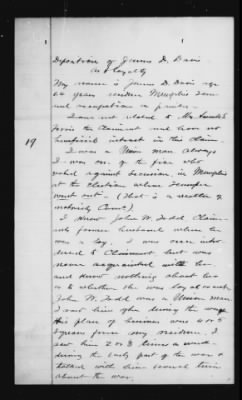 Deposition of James D. Davis
as to loyalty
My name is James D. Davis age
64 years residence Memphis Tenn
and occupation a farmer.
I am not related to Mrs
the Claimant and have not
beneficial interest in this claim.
19
I was a Union man always
I was one of the five who
voted against secession in Memphis
at the election where Tennessee
went out - (This is a matter of
notoriety)
I knew John W. Todd Claim-
ants former husband when he
was a boy. I was once intro
duced to Claimant but was
never acquainted with her
and know nothing about her
as to whether she was loyal or not.
John W. Todd was a Union man
I saw him often during the war
His place of business was 4 or 5
squares from my residence. I
saw him 2 or 3 times a week
during the early part of the war &
talked with him several times
about the war.